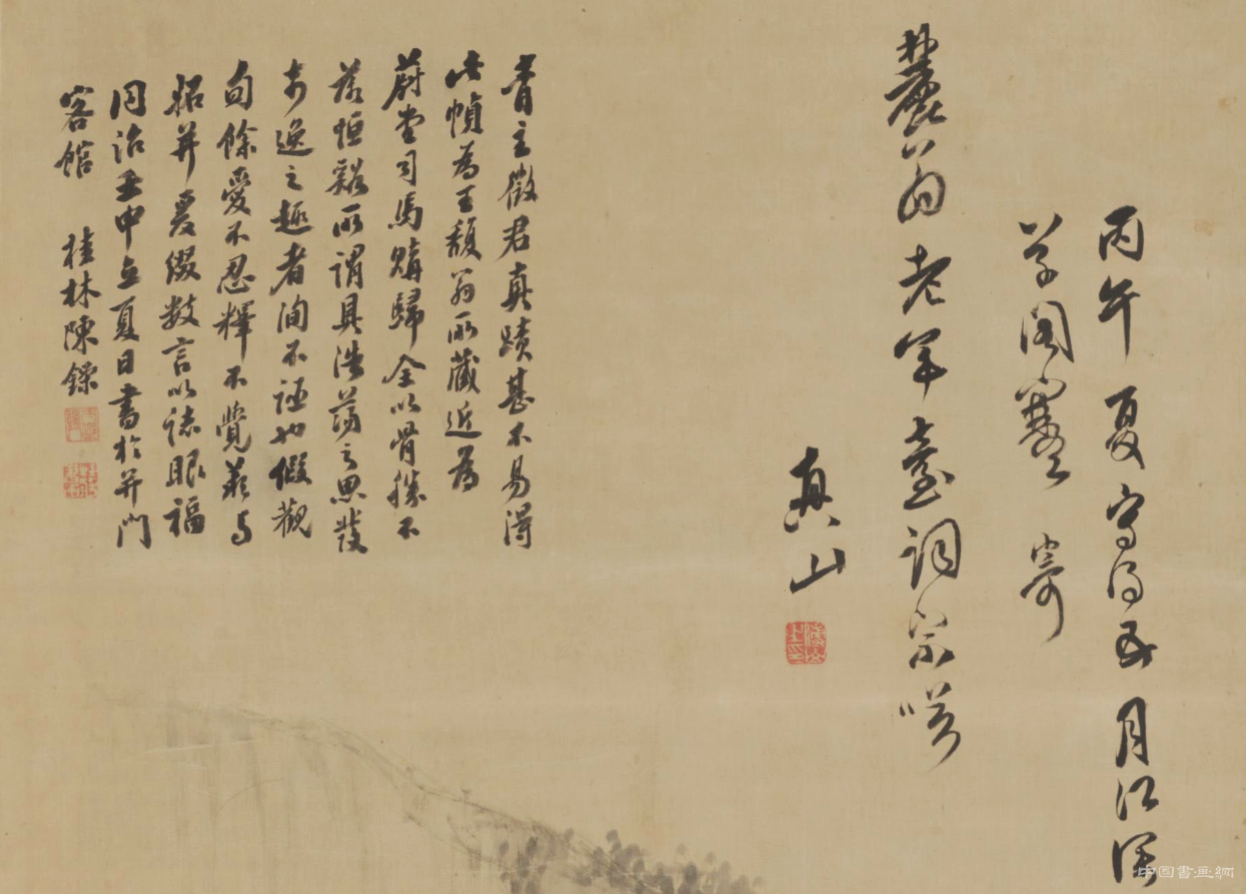 丙午夏寫得五月江深
草閣寒 寄
麓翁老年臺詞宗咲
真山
青主徵君真蹟甚不易得
此幀為王馥翁所藏近為
蔚堂司馬購歸全以骨勝不
落恒谿所謂具浩蕩之思發
奇逸之趣者洵不誣也假觀
旬餘愛不忍釋不覺与
并爰綴數言以誌眼福
同治壬申立夏日書於并門
客館 桂林陳鑠
中国書画網